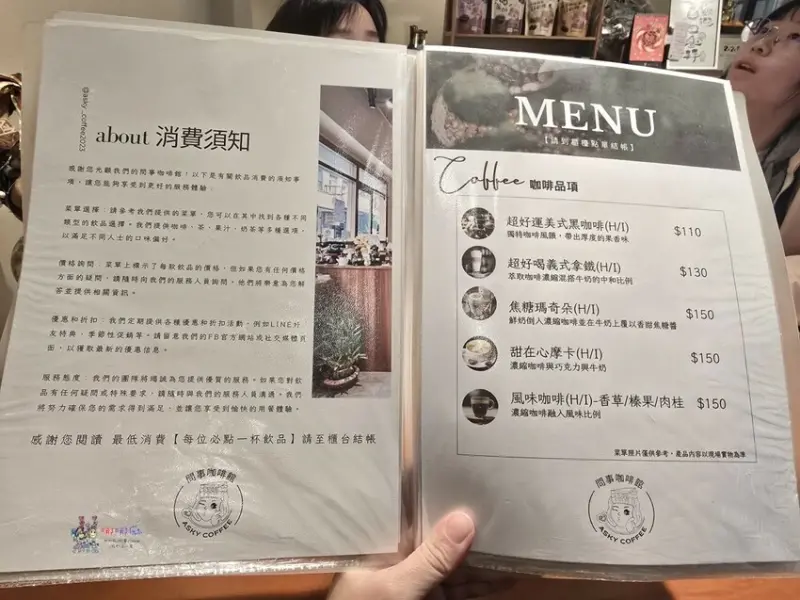 @asky_coffee2023
about 消費須知
感謝您光顧我們的問事咖啡館！以下是有關飲品消費的須知事
項，讓您能夠享受到更好的服務體驗：
菜單選擇：請參考我們提供的菜單，您可以在其中找到各種不同
類型的飲品選擇。我們提供咖啡、茶、果汁、奶茶等多種選項，
以滿足不同人士的口味偏好。
價格詢問：菜單上標示了每款飲品的價格，但如果您有任何價格
方面的疑問，請隨時向我們的服務人員詢問，他們將樂意為您解
答並提供相關資訊。
優惠和折扣：我們定期提供各種優惠和折扣活動，例如LINE好
友特典、季節性促銷等。請留意我們的FB官方網站或社交媒體頁
面，以獲取最新的優惠信息。
服務態度：我們的團隊將竭誠為您提供優質的服務。如果您對飲
品有任何疑問或特殊要求，請隨時與我們的服務人員溝通。我們
將努力確保您的需求得到滿足，並讓您享受到愉快的用餐體驗。
感謝您閱讀 最低消費【每位必點一杯飲品】請至櫃台結帳
問事咖啡館
ASKY COFFEE
MENU
【請到櫃檯點單結帳】
Coffee 咖啡品項
超好運美式黑咖啡(H/I) $110
獨特咖啡風韻，帶出厚度的果香味
超好喝義式拿鐵(H/I) $130
萃取咖啡濃縮混搭牛奶的中和比例
焦糖瑪奇朵(H/I) $150
鮮奶倒入濃縮咖啡並在牛奶上覆以香甜焦糖醬
甜在心摩卡(H/I) $150
濃縮咖啡與巧克力與牛奶
風味咖啡(H/I)-香草/榛果/肉桂 $150
濃縮咖啡融入風味比例
菜單照片僅供參考，產品內容以現場實物為準
問事咖啡館
ASKY COFFEE